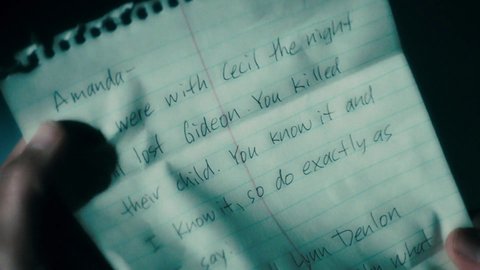 Amanda-
were with Cecil the night
lost Gideon. You killed
their child. You know it and
I know it, so do exactly as
say.
Lynn Denlon
what